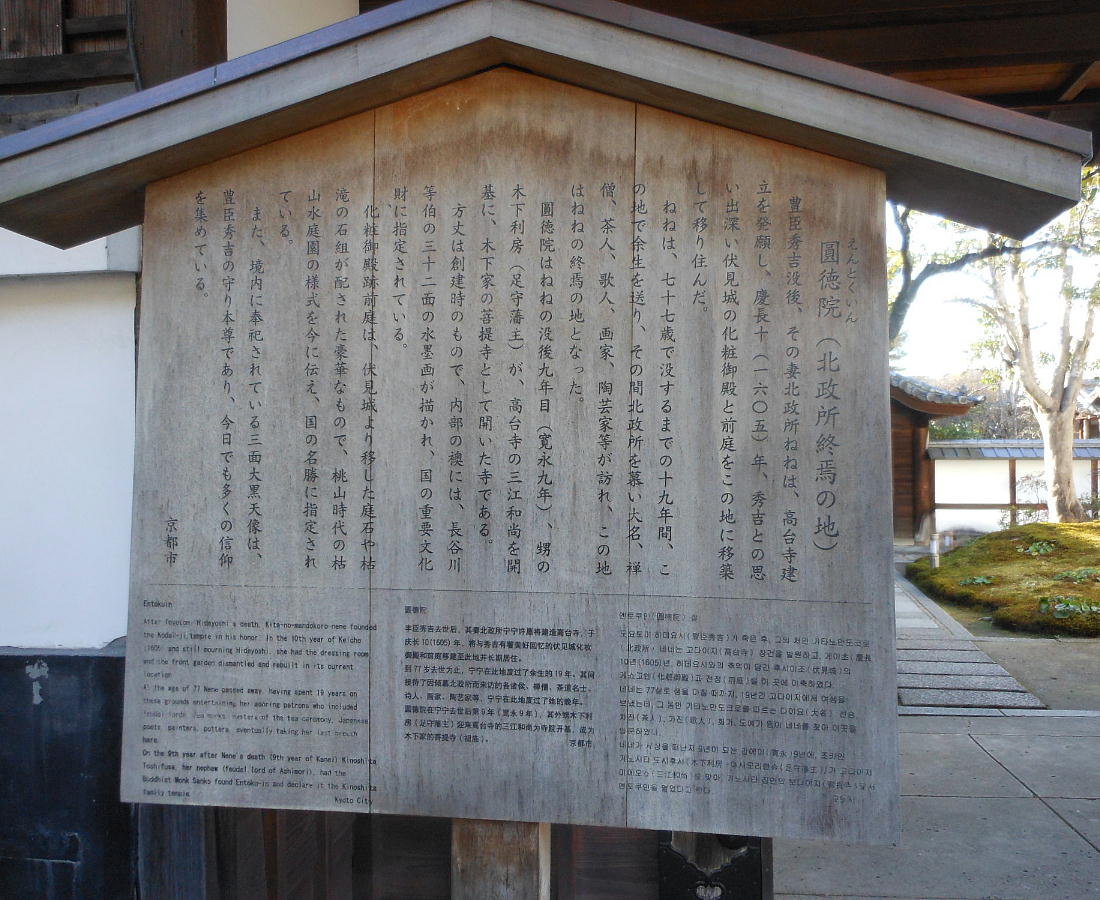 えんとくいん
圓徳院（北政所終焉の地）
豊臣秀吉没後、その妻北政所ねねは、高台寺建
立を発願し、慶長十（一六〇五）年、秀吉との思
い出深い伏見城の化粧御殿と前庭をこの地に移築
して移り住んだ。
ねねは、七十七歳で没するまでの十九年間、こ
の地で余生を送り、その間北政所を慕い大名、禅
僧、茶人、歌人、画家、陶芸家等が訪れ、この地
はねねの終焉の地となった。
圓徳院はねねの没後九年目（寛永九年）、甥の
木下利房（足守藩主）が、高台寺の三江和尚を開
基に、木下家の菩提寺として開いた寺である。
方丈は創建時のもので、内部の襖には、長谷川
等伯の三十二面の水墨画が描かれ、国の重要文化
財に指定されている。
化粧御殿跡前庭は、伏見城より移した庭石や枯
滝の石組が配された豪華なもので、桃山時代の枯
山水庭園の様式を今に伝え、国の名勝に指定され
ている。
また、境内に奉祀されている三面大黒天像は、
豊臣秀吉の守り本尊であり、今日でも多くの信仰
を集めている。
京都市
Entokuin
After Toyotomi Hideyoshi's death, Kita-no-mandokoro-nene founded
the Kodai-ji temple in his honor. In the 10th year of Keicho
(1605) and still mourning Hideyoshi, she had the dressing room
and the front garden dismantled and rebuilt in its current
location
At the age of 77 Nene passed away, having spent 19 years on
these grounds entertaining her adoring patrons who included
feudal lords, Zen monks, masters of the tea ceremony, Japanese
poets, painters, potters, eventually taking her last breath
here.
On the 9th year after Nene's death (9th year of Kanei) Kinoshita
Toshifusa, her nephew (feudal lord of Ashimori), had the
Buddhist Monk Sanko found Entoku-in and declare it the Kinoshita
family temple.
Kyoto City
圆德院
丰臣秀吉去世后，其妻北政所宁宁许愿将建造高台寺，于
庆长10(1605)年，将与秀吉有着美好回忆的伏见城化妆
御殿和前庭移建至此地并长期居住。
到77岁去世为止，宁宁在此地度过了余生的19年，其间
接待了因倾慕北政所而来访的各诸侯、禅僧、茶道名士、
诗人、画家、陶艺家等，宁宁在此地度过了她的晚年。
圆德院在宁宁去世后第9年（宽永9年），其外甥木下利
房（足守藩主）迎来高台寺的三江和尚为寺院开基，成为
木下家的菩提寺（祖庙）。
京都市
엔토쿠인(圓徳院) 절
도요토미 히데요시(豊臣秀吉)가 죽은 후, 그의 처인 기타노만도코로
(北政所)·네네는 고다이지(高台寺) 창건을 발원하고, 게이초(慶長)
10년(1605)년, 히데요시와의 추억이 담긴 후시미조(伏見城)의
게쇼고텐(化粧御殿)과 전정(前庭)을 이 곳에 이축하였다.
네네는 77살로 생을 마칠 때까지, 19년간 고다이지에서 여생을